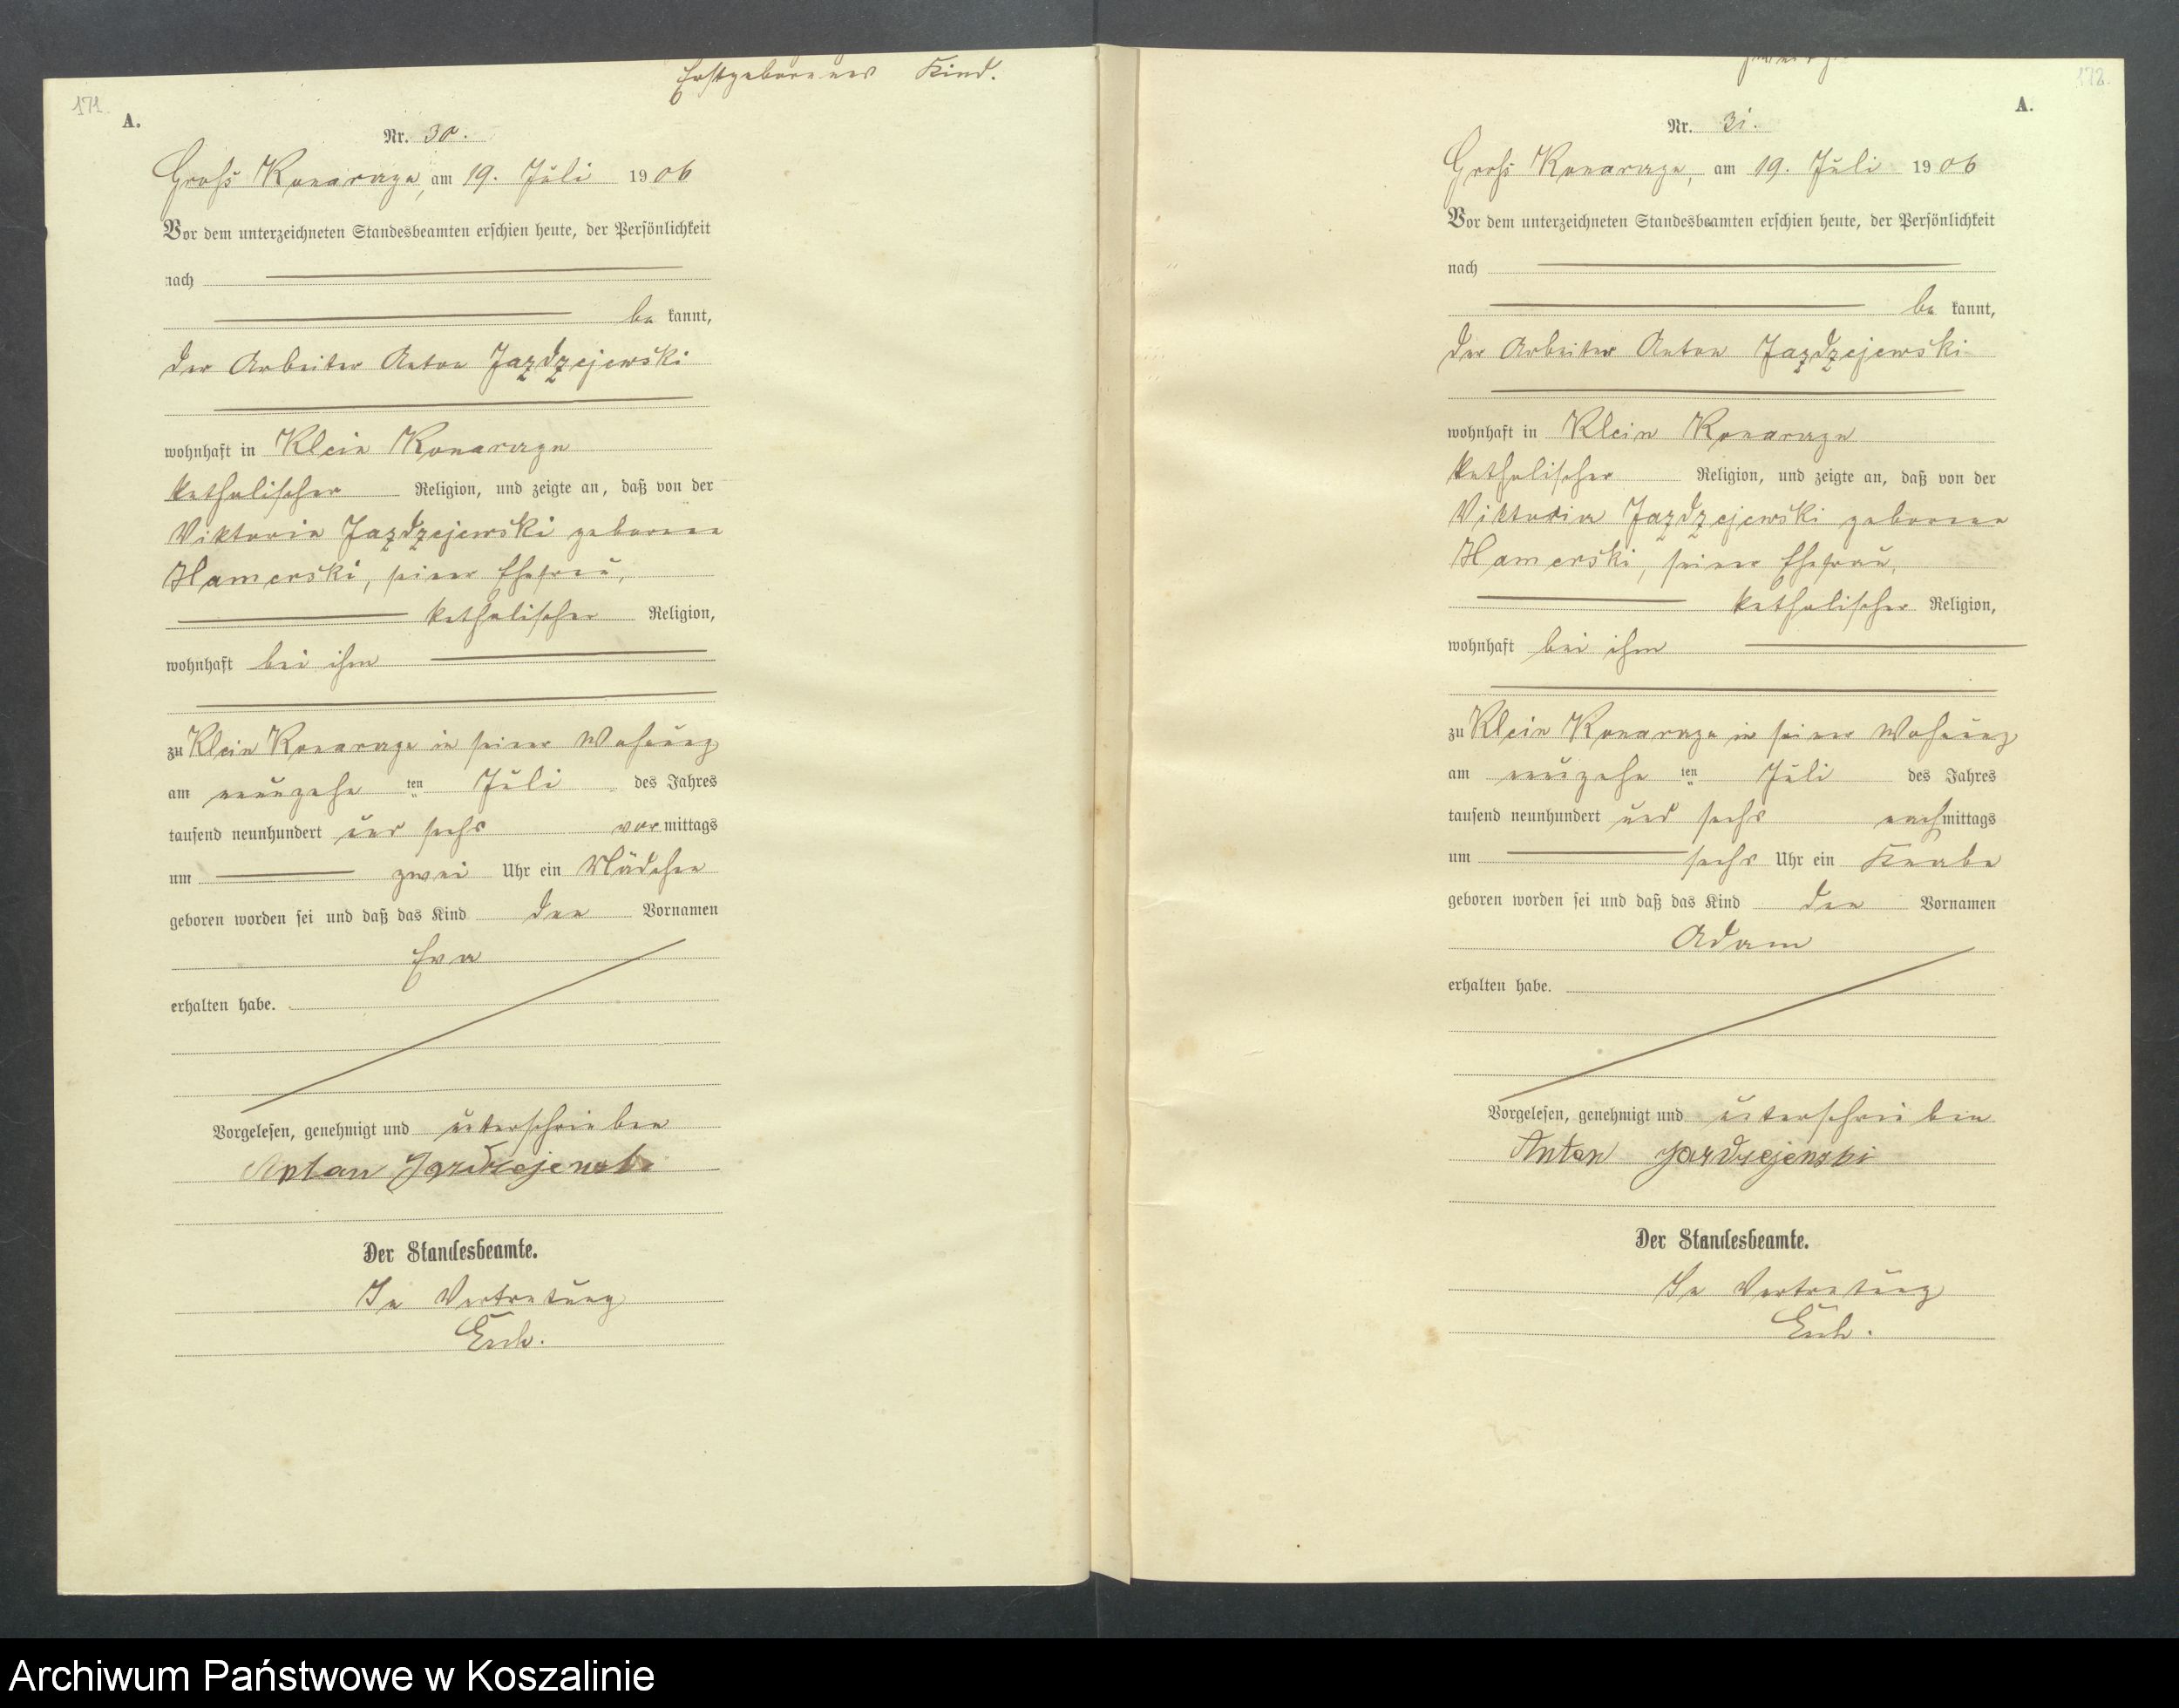 Erstgeborenes Kind.
171.
A.
Nr. 30.
Gross Konarazn, am 19. Juli 1906
Vor dem unterzeichneten Standesbeamten erschien heute, der Persönlichkeit
nach
be kannt,
der Arbeiter Anton Jazdzejewski
wohnhaft in Klein Konarazn
katholischer Religion, und zeigte an, daß von der
Viktoria Jazdzejewski geborene
Hamerski, seiner Ehefrau,
katholischer Religion,
wohnhaft bei ihm
zu Klein Konarazn in seiner Wohnung
am neunzehn ten Juli des Jahres
tausend neunhundert und sechs vor mittags
um zwei Uhr ein Mädchen
geboren worden sei und daß das Kind den Vornamen
Eva
erhalten habe.
Vorgelesen, genehmigt und unterschrieben
Anton Jazdzejewski
Der Standesbeamte.
In Vertretung
172.
A.
Nr. 31.
Gross Konarazn, am 19. Juli 1906
Vor dem unterzeichneten Standesbeamten erschien heute, der Persönlichkeit
nach
be kannt,
der Arbeiter Anton Jazdzejewski
wohnhaft in Klein Konarazn
katholischer Religion, und zeigte an, daß von der
Viktoria Jazdzejewski geborene
Hamerski, seiner Ehefrau,
katholischer Religion,
wohnhaft bei ihm
zu Klein Konarazn in seiner Wohnung
am neunzehn ten Juli des Jahres
tausend neunhundert und sechs nachmittags
um sechs Uhr ein Knabe
geboren worden sei und daß das Kind den Vornamen
Adam
erhalten habe.
Vorgelesen, genehmigt und unterschrieben
Anton Jazdzejewski
Der Standesbeamte.
In Vertretung
Archiwum Państwowe w Koszalinie